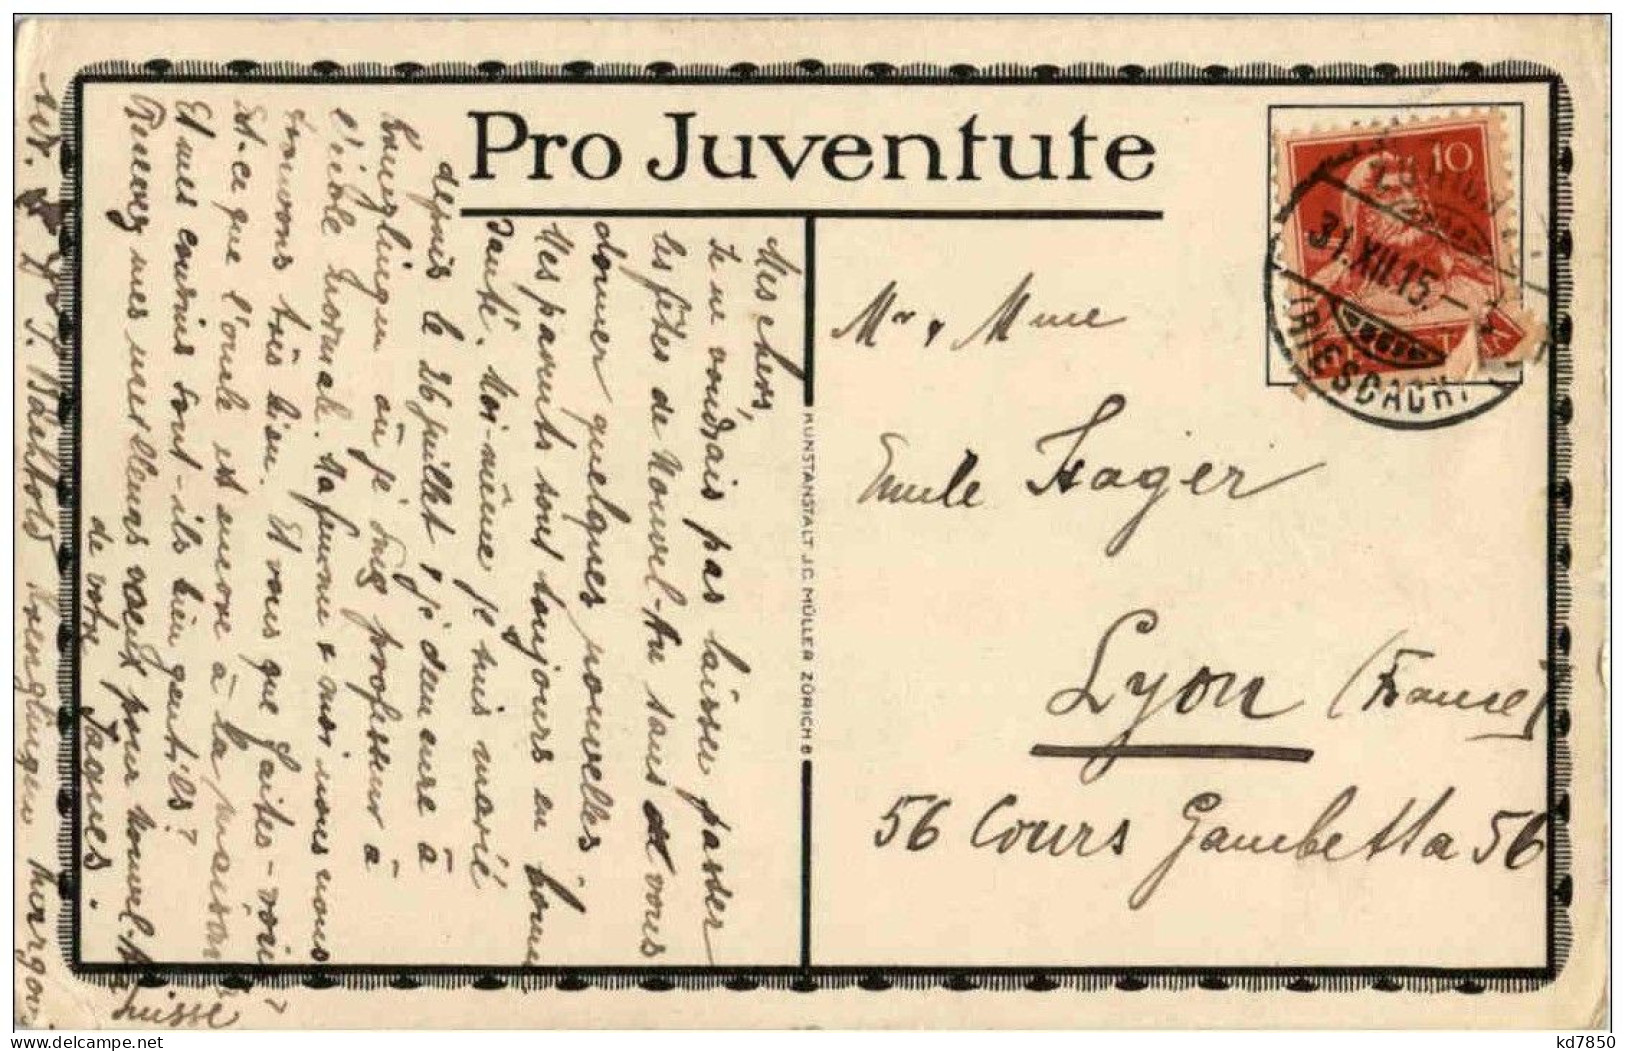 Pro Juventute
Mes chers,
Je ne voudrais pas laisser passer
les fêtes de Nouvel-An sans vous
donner quelques nouvelles
Mes parents sont toujours en bonne
santé. Moi-même je suis marié
depuis le 26 juillet & je demeure à
où je suis professeur à
l'école Normale. Ma femme & moi nous nous
trouvons très bien. Et vous que faites-vous?
Est-ce que l'oncle est encore à la maison
Et mes cousins sont-ils bien gentils?
Recevez mes meilleurs vœux pour Nouvel-An
de votre Jaques.
J. Bächtold Kreuzlingen Thurgovie
Suisse
KUNSTANSTALT J.C. MÜLLER ZÜRICH 8
10
31.XII.15.
Mr & Mme
Emile Hager
Lyon (France)
56 Cours Gambetta 56
kd7850